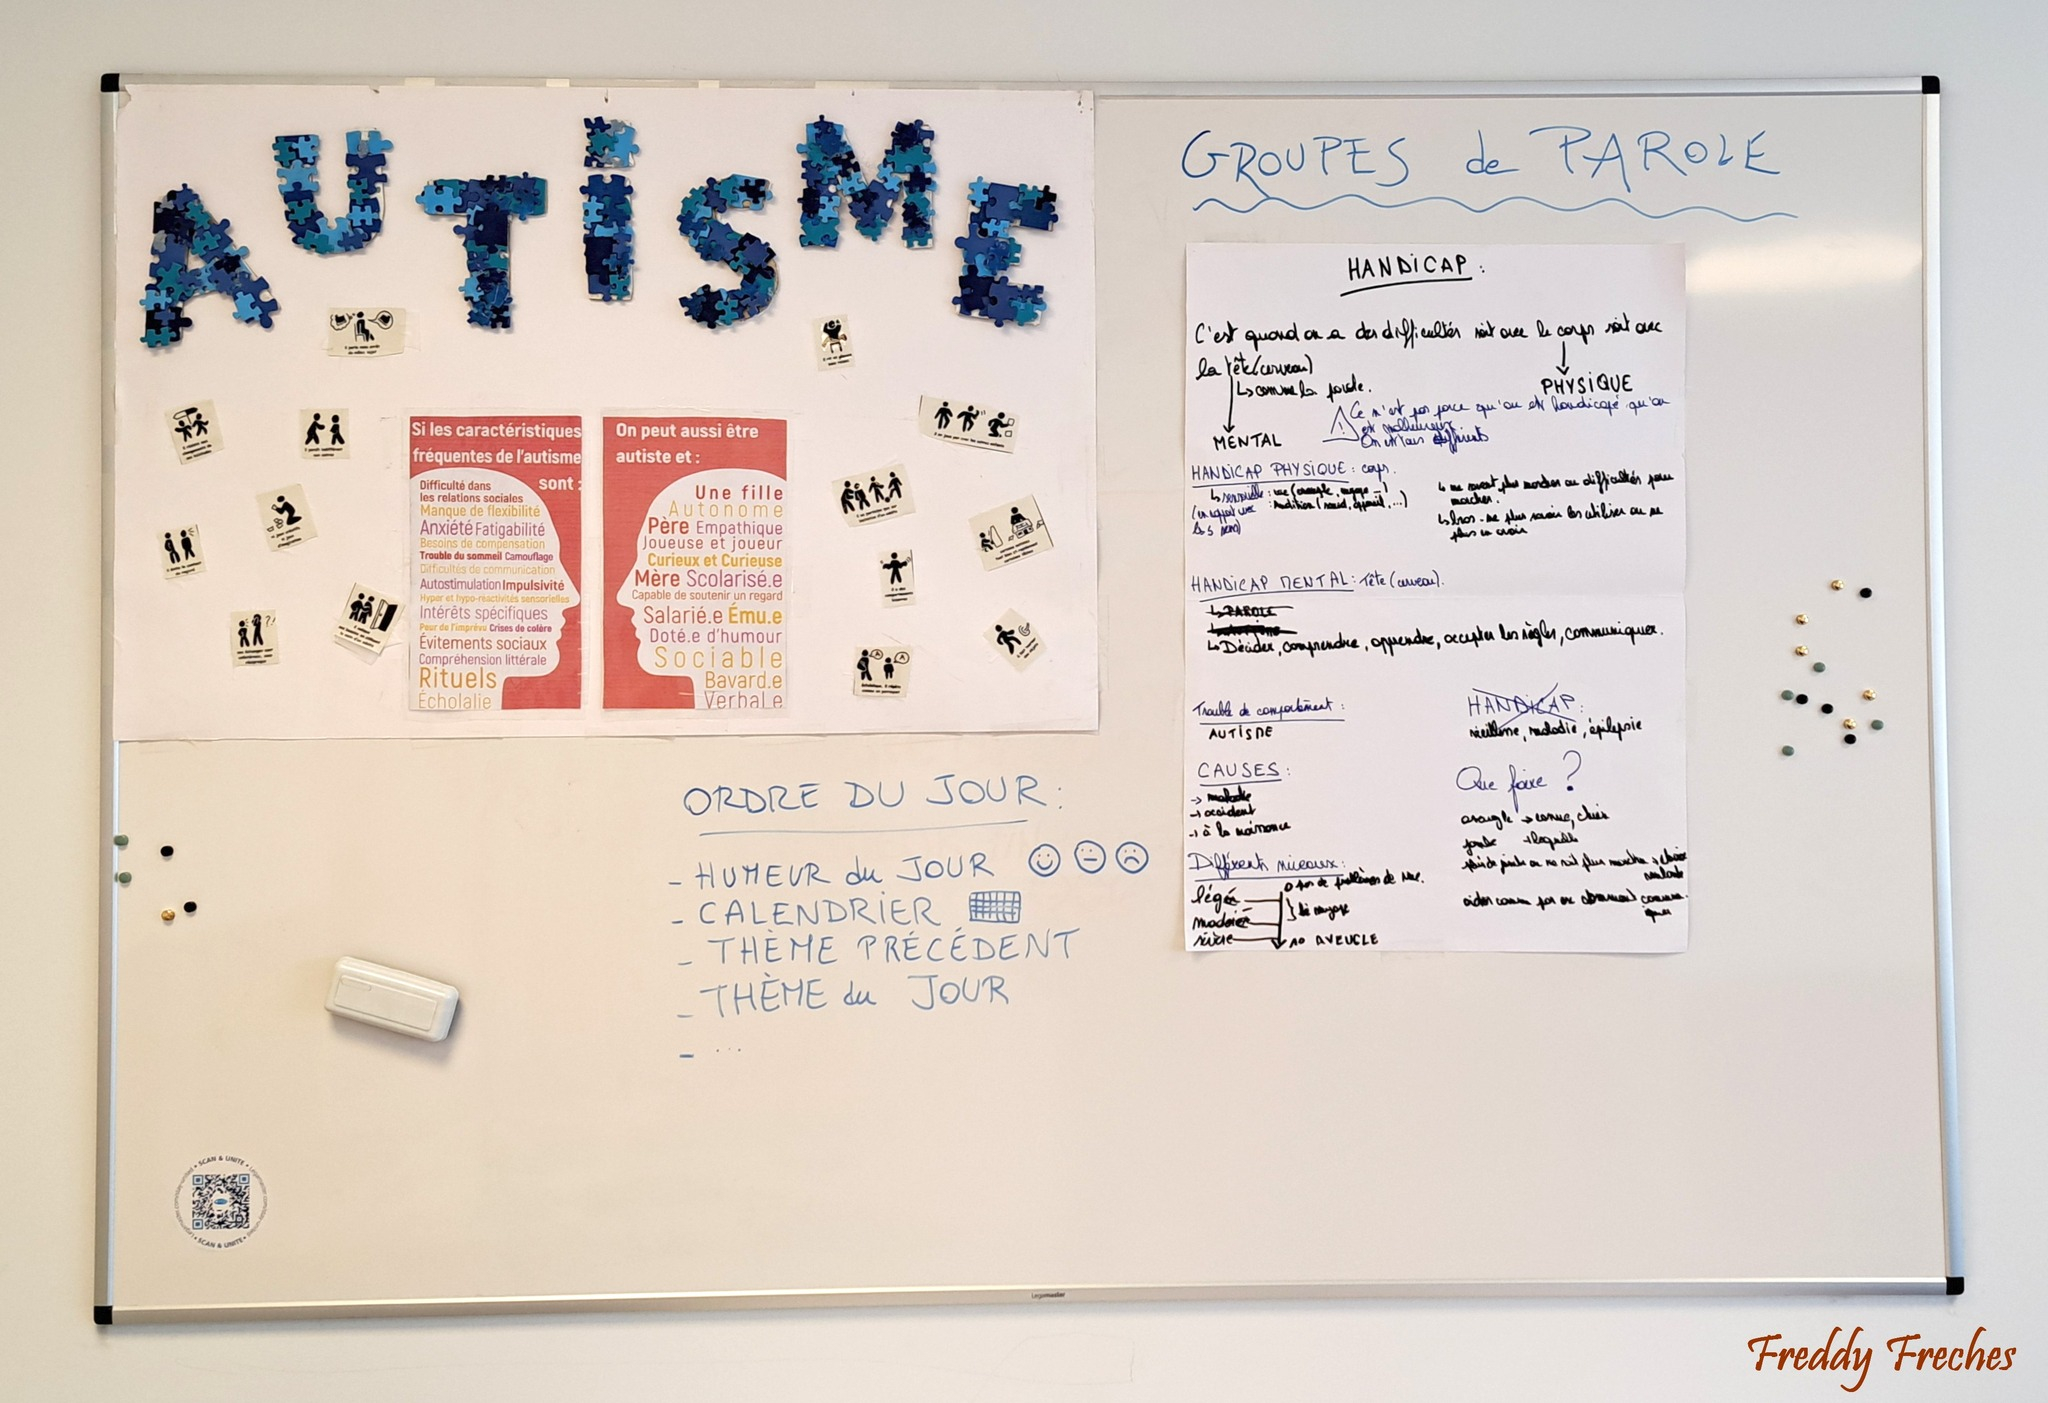 AUTISME
Si les caractéristiques
fréquentes de l'autisme
sont :
Difficulté dans
les relations sociales
Manque de flexibilité
Anxiété Fatigabilité
Besoins de compensation
Trouble du sommeil Camouflage
Difficultés de communication
Autostimulation Impulsivité
Hyper et hypo-réactivités sensorielles
Intérêts spécifiques
Peur de l'imprévu Crises de colère
Évitements sociaux
Compréhension littérale
Rituels
Écholalie
On peut aussi être
autiste et :
Une fille
Autonome
Père Empathique
Joueuse et joueur
Curieux et Curieuse
Mère Scolarisé.e
Capable de soutenir un regard
Salarié.e Ému.e
Doté.e d'humour
Sociable
Bavard.e
Verbal.e
ORDRE DU JOUR :
- HUMEUR du JOUR
- CALENDRIER
- THÈME PRÉCÉDENT
- THÈME du JOUR
- ...
GROUPES de PAROLE
HANDICAP :
C'est quand on a des difficultés soit avec le corps soit avec
la tête (cerveau)
↳ comme la parole.
PHYSIQUE
MENTAL
Ce n'est pas parce qu'on est handicapé qu'on
est malheureux
On est tous différents
HANDICAP PHYSIQUE : corps.
↳ sensorielle : vue (aveugle,
: audition (sourd, appareil, ...)
5 sens)
↳ ne savent plus marcher ou difficultés pour
marcher.
↳ bras - ne plus savoir les utiliser ou ne
plus en avoir
HANDICAP MENTAL : Tête (cerveau).
↳ PAROLE
↳ Décider, comprendre, apprendre, accepter les règles, communiquer.
Trouble de comportement :
AUTISME
HANDICAP :
vieillesse, maladie, épilepsie
CAUSES :
→ maladie
→ accident
→ à la naissance
Que faire ?
aveugle → canne, chien
Différents niveaux :
légé
modéré
sévère
0 pas de problèmes de vue.
10 AVEUGLE
SCAN & UNITE
SCAN & UNITE
Legamaster
Freddy Freches